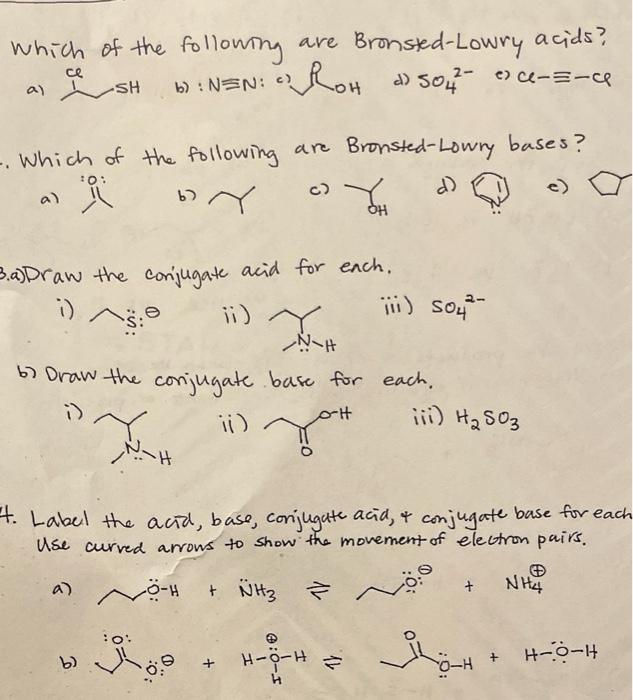 Which of the following are Bronsted-Lowry acids?
a) Cl SH b) :N≡N: c) OH d) SO₄²⁻ e) Cl-≡-Cl
. Which of the following are Bronsted-Lowry bases?
a) :O: b) c) OH d) N: e)
3.a) Draw the conjugate acid for each.
i) S:⊖ ii) N-H iii) SO₄²⁻
b) Draw the conjugate base for each.
i) N-H ii) O-H O iii) H₂SO₃
4. Label the acid, base, conjugate acid, + conjugate base for each
Use curved arrows to show the movement of electron pairs.
a) Ö-H + N̈H₃ ⇌ Ö:⊖ + NH₄⊕
b) :O: Ö:⊖ + H-Ö-H ⊕ H ⇌ O Ö-H + H-Ö-H